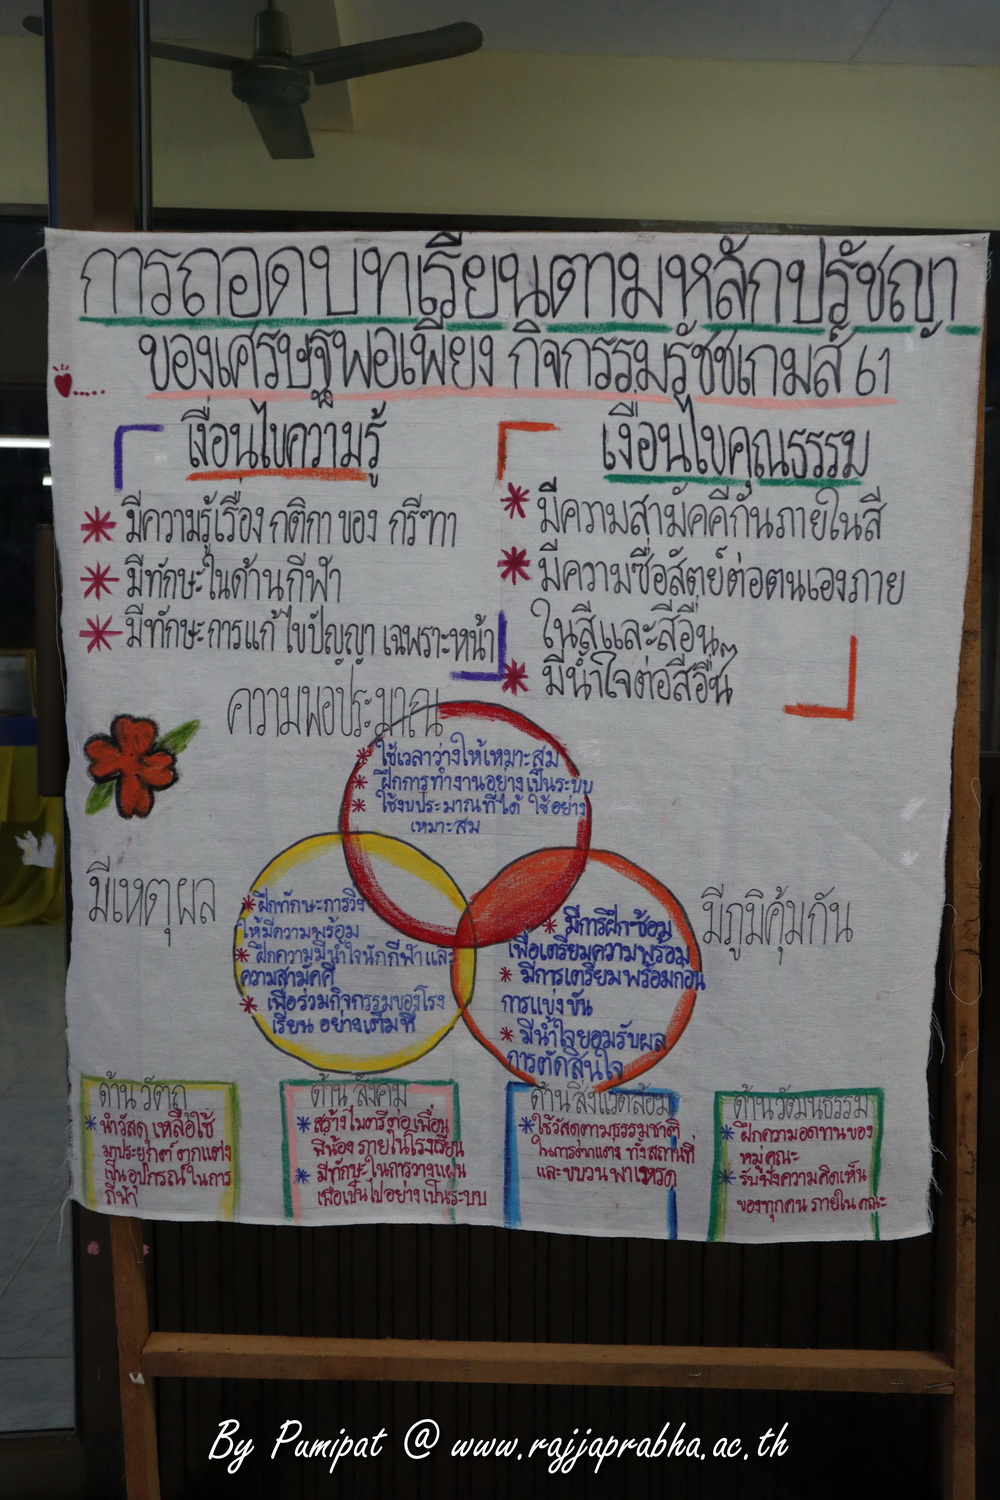 การถอดบทเรียนตามหลักปรัชญา
ของเศรษฐพอเพียง กิจกรรมรัชชเกมส์ 61
เงื่อนไขความรู้
มีความรู้เรื่อง กติกา ของ กรีฑา
มีทักษะในด้านกีฬา
มีทักษะการแก้ไขปัญญา เฉพาะหน้า
เงื่อนไขคุณธรรม
มีความสามัคคีกันภายในสี
มีความซื่อสัตย์ต่อตนเองภาย
ในสีและสีอื่นๆ
มีน้ำใจต่อสีอื่น
ความพอประมาณ
ใช้เวลาว่างให้เหมาะสม
ฝึกการทำงานอย่างเป็นระบบ
ใช้งบประมาณที่ได้ ใช้อย่าง
เหมาะสม
มีเหตุผล
ฝึกทักษะการวิ่ง
ให้มีความพร้อม
ฝึกความมีน้ำใจนักกีฬาและ
ความสามัคคี
เพื่อร่วมกิจกรรมของโรง
เรียน อย่างเต็มที่
มีภูมิคุ้มกัน
มีการฝึกซ้อม
เพื่อเตรียมความพร้อม
มีการเตรียมพร้อมก่อน
การแข่งขัน
มีน้ำใจยอมรับผล
การตัดสินใจ
ด้าน วัตถุ
นำวัสดุ เหลือใช้
มาประยุกต์ ตกแต่ง
เป็นอุปกรณ์ในการ
กีฬา
ด้าน สังคม
สร้างไมตรีต่อ เพื่อน
พี่น้อง ภายในโรงเรียน
มีทักษะในการวางแผน
เพื่อเป็นไปอย่างเป็นระบบ
ด้าน สิ่งแวดล้อม
ใช้วัสดุตามธรรมชาติ
ในการตกแต่ง ทั้งสถานที่
และขบวน พาเหรด
ด้านวัฒนธรรม
ฝึกความอดทนของ
หมู่คณะ
รับฟังความคิดเห็น
ของทุกคน ภายใน คณะ
By Pumipat @ www.rajjaprabha.ac.th